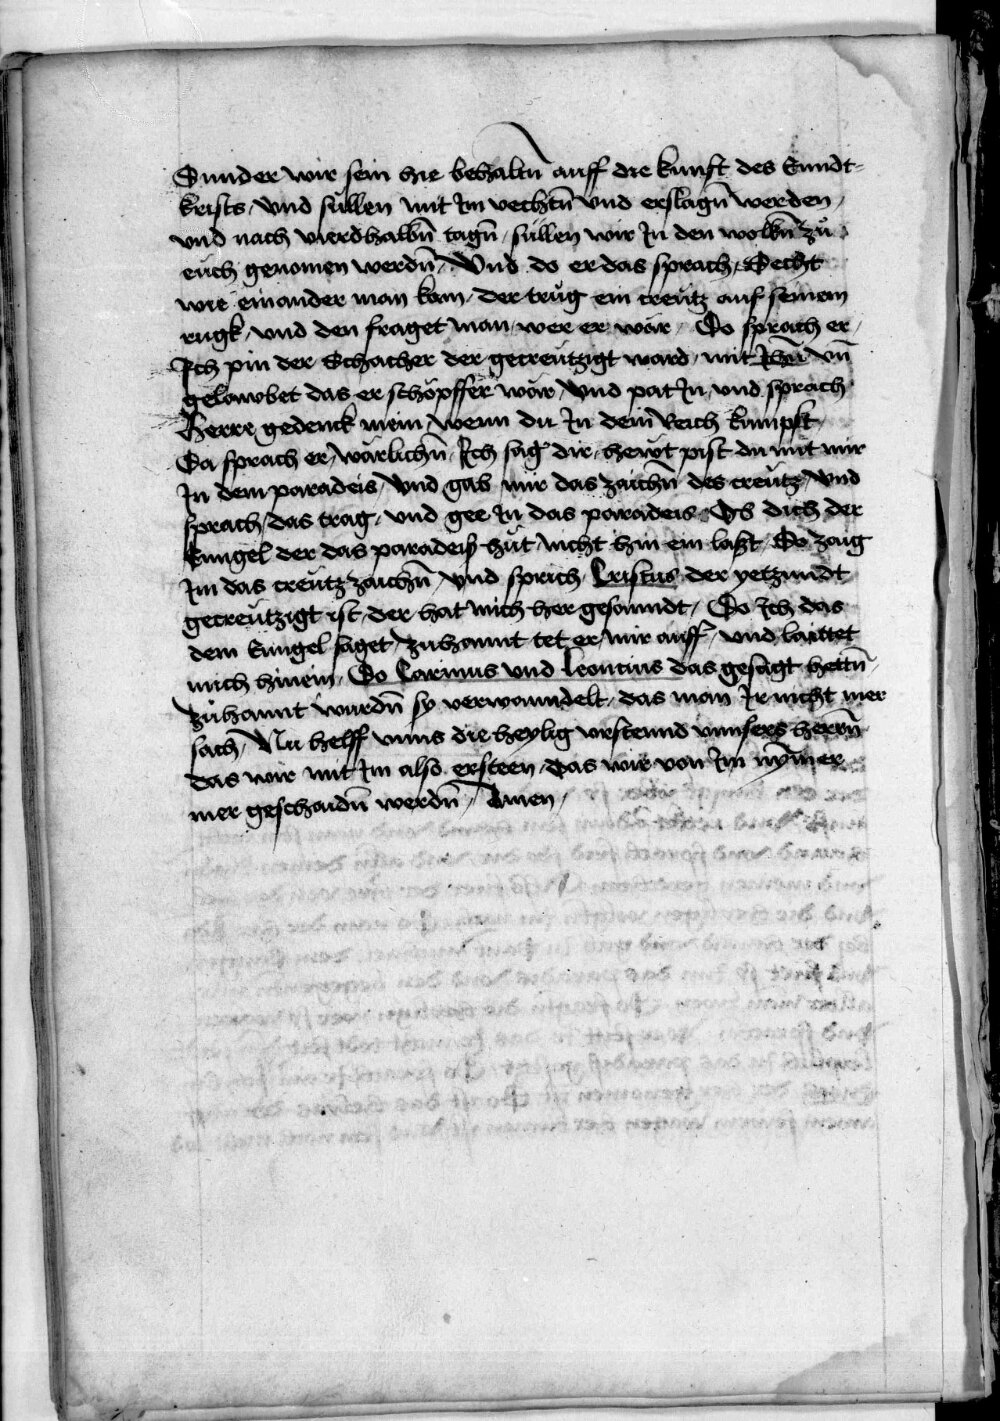 Sunder wir sein hie behaltn̄ auff die kunft des Enndt-
krists / vnd süllen mit Jm vechtn̄ vnd erslagn̄ werden /
vnd nach vierdhalbn̄ tagn̄ / süllen wir Jn den wolkn̄ zů
euch genomen werdn̄ / Vnd do er das sprach / Secht
wie ein ander man kom / der trůg ein creütz auf seinem
rugk / vnd den fraget man / wer er wär / Do sprach er /
Jch pin der Schacher der gecreützigt ward / mit Jhū vn̄
gelawbet das er schöpffer wär / vnd pat Jn / vnd sprach
Herre gedenck mein / wenn du Jn dein Reich kumpst /
Da sprach er / wärlichn̄ Jch sag dir / hewt pist du mit mir
Jn dem paradeis / Vnd gab mir das zaichn̄ des creütz / Vnd
sprach / das trag / vnd gee Jn das paradeis / Ob dich der
Enngel der das paradeiß hüt / nicht hin ein laßt / So zaig
Jm das creütz zaichn̄ / vnd sprich / Cristus der yetzundt
gecreützigt ist / der hat mich her gesanndt / Do Jch das
dem Enngel saget / zuhannt tet er mir auff / vnd laittet
mich hinein / Do Carinus vnd Leoncius das gesagt hettn̄ /
zůhannt wurdn̄ sy verwanndelt / das man Jr nicht mer
sach / Nu helff vnns die heylig vrstennd vnnsers herrn̄
das wir mit Jm also ersteen / Das wir von Jm nȳmer
mer geschaidn̄ werdn̄ / Amen /